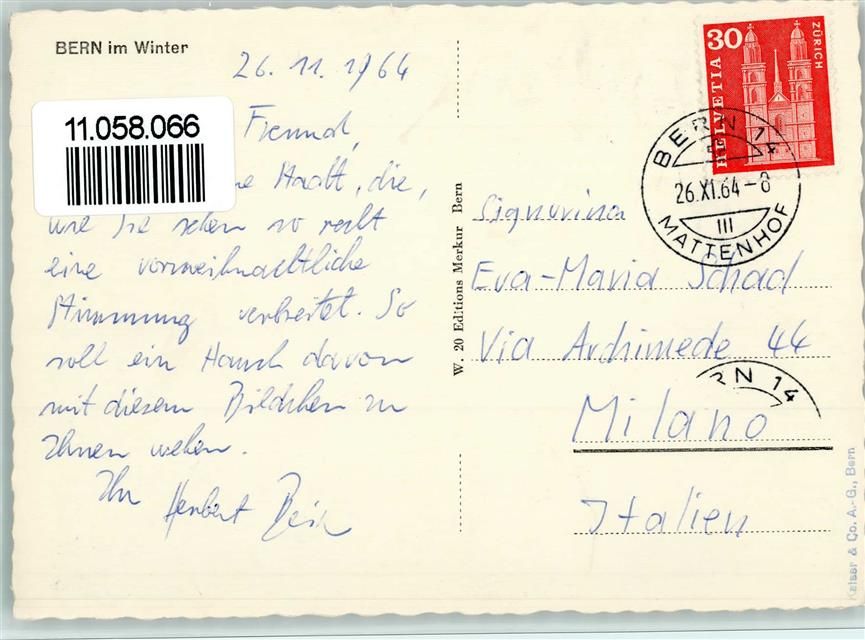 BERN im Winter
26. 11. 1964
11.058.066
Freund,
Stadt, die,
wie Sie sehen so recht
eine vorweihnachtliche
Stimmung verbreitet. So
soll ein Hauch davon
mit diesem Bildchen zu
Ihnen wehen.
Ihr Herbert
W. 20 Editions Merkur Bern
30
HELVETIA
ZÜRICH
BERN 14
26.XI.64-8
III
MATTENHOF
Signorina
Eva-Maria Schad
Via Archimede 44
RN 14
Milano
Italien
Kaiser & Co. A.-G., Bern